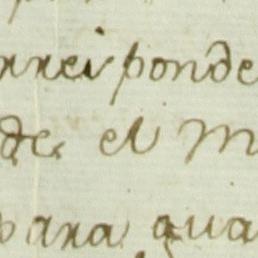 rresponde
de el M
para qua